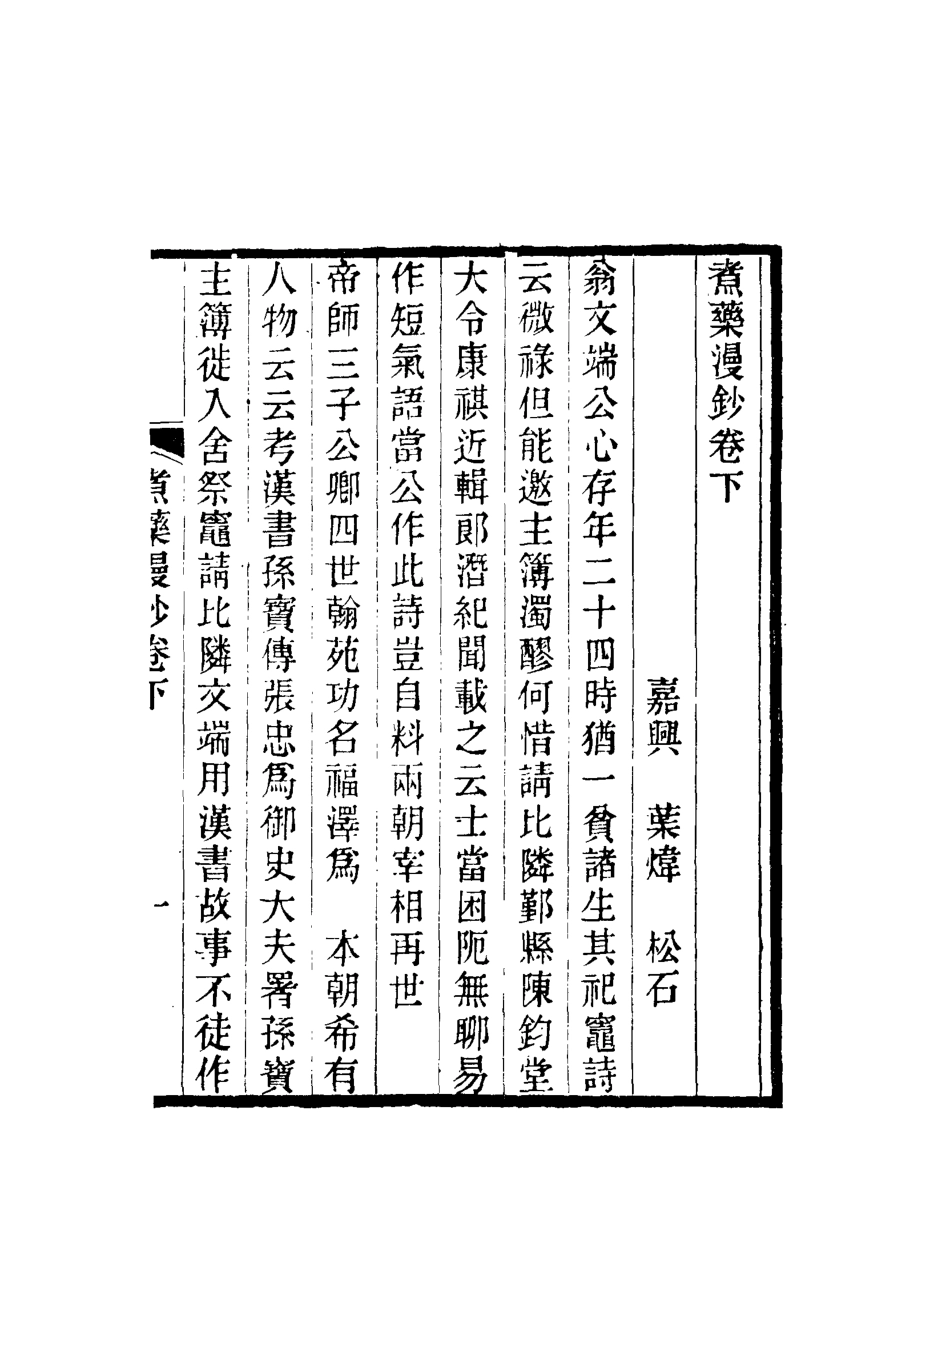 煮藥漫鈔卷下
嘉興　葉煒　松石
翁文端公心存年二十四時猶一貧諸生其祀竈詩
云微祿但能邀主簿濁醪何惜請比隣鄞縣陳鈞堂
大令康祺近輯郎潛紀聞載之云士當困阨無聊易
作短氣語當公作此詩豈自料兩朝宰相再世
帝師三子公卿四世翰苑功名福澤爲　本朝希有
人物云云考漢書孫寶傳張忠爲御史大夫署孫寶
主簿徙入舍祭竈請比隣文端用漢書故事不徒作
煮藥漫鈔卷下　一